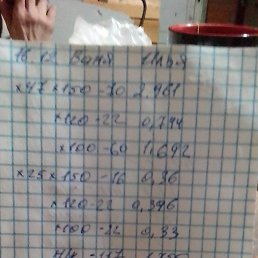 16.12 Баня
×47×150-70 2.961
×120-22 0,744
×100-60 1.692
×25×150-16 0,36
×120-22 0,396
×100-22 0,33